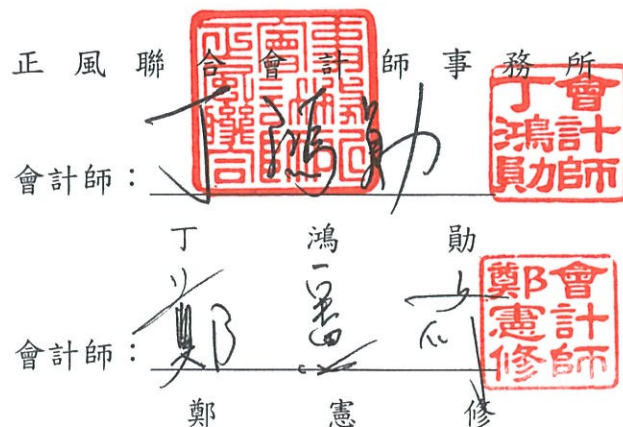 正風聯合會計師事務所
會計師：丁鴻勛
會計師
丁鴻勛
丁鴻勛
會計師：鄭憲修
會計師
鄭憲修
鄭憲修